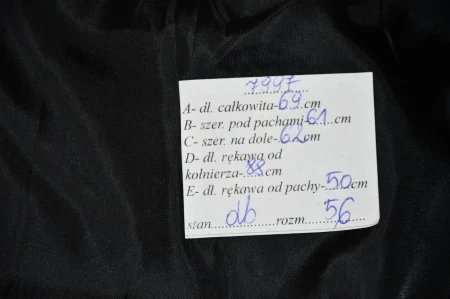 7997
A- dł. całkowita-69cm
B- szer. pod pachami-61cm
C- szer. na dole-62cm
D- dł. rękawa od
kołnierza-88cm
E- dł. rękawa od pachy-50cm
stan db rozm. 56